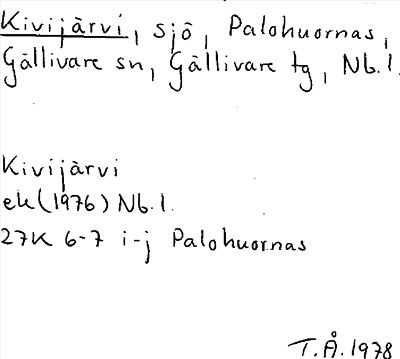 Kivijärvi, sjö, Palohuornas,
Gällivare sn, Gällivare tg, Nb.l.
Kivijärvi
ek(1976) Nb.l.
27K 6-7 i-j Palohuornas
T.Å.1978